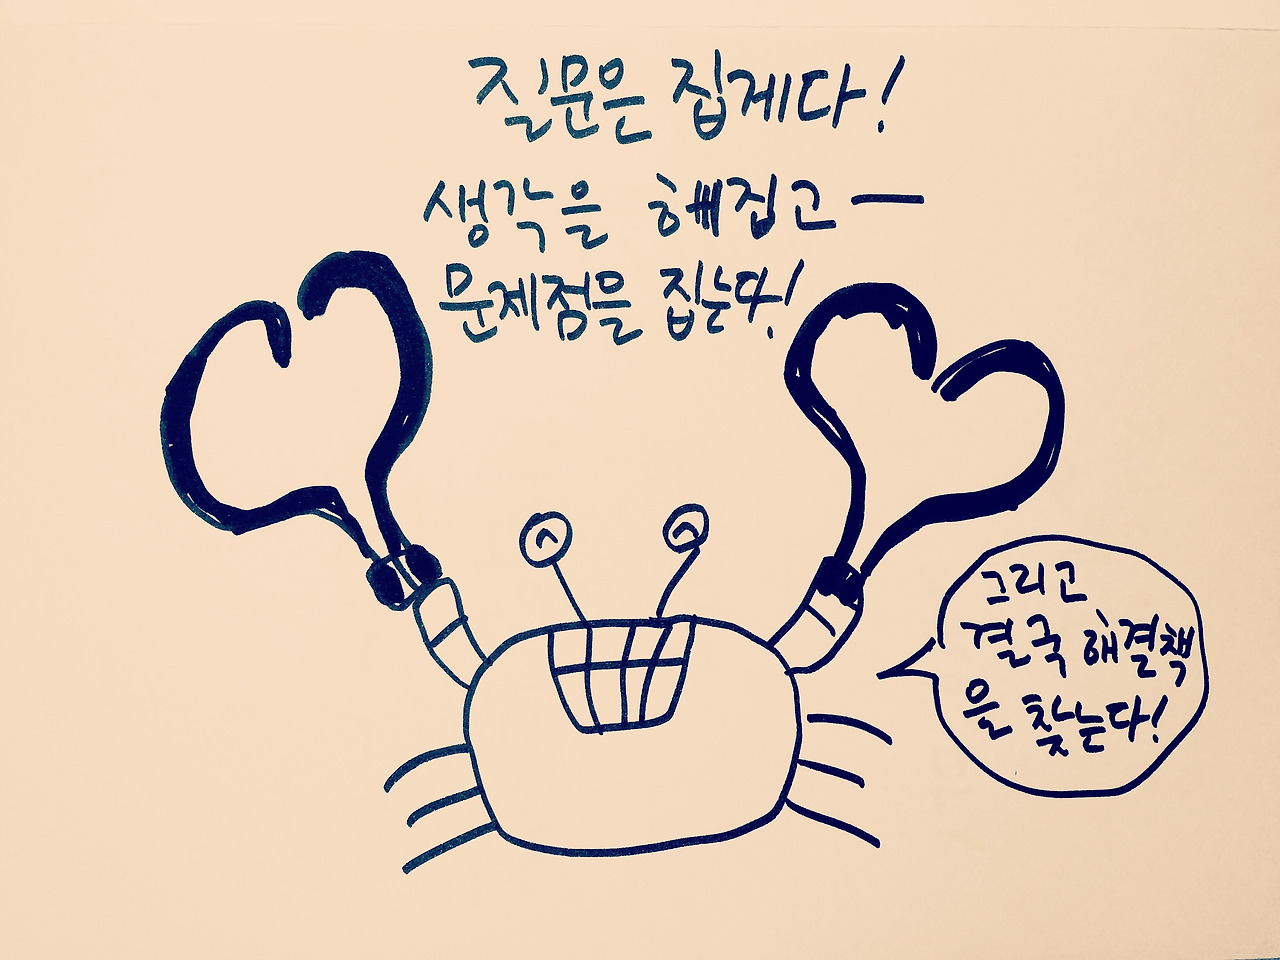 질문은 집게다!
생각을 헤집고—
문제점을 집는다!
그리고
결국 해결책
을 찾는다!